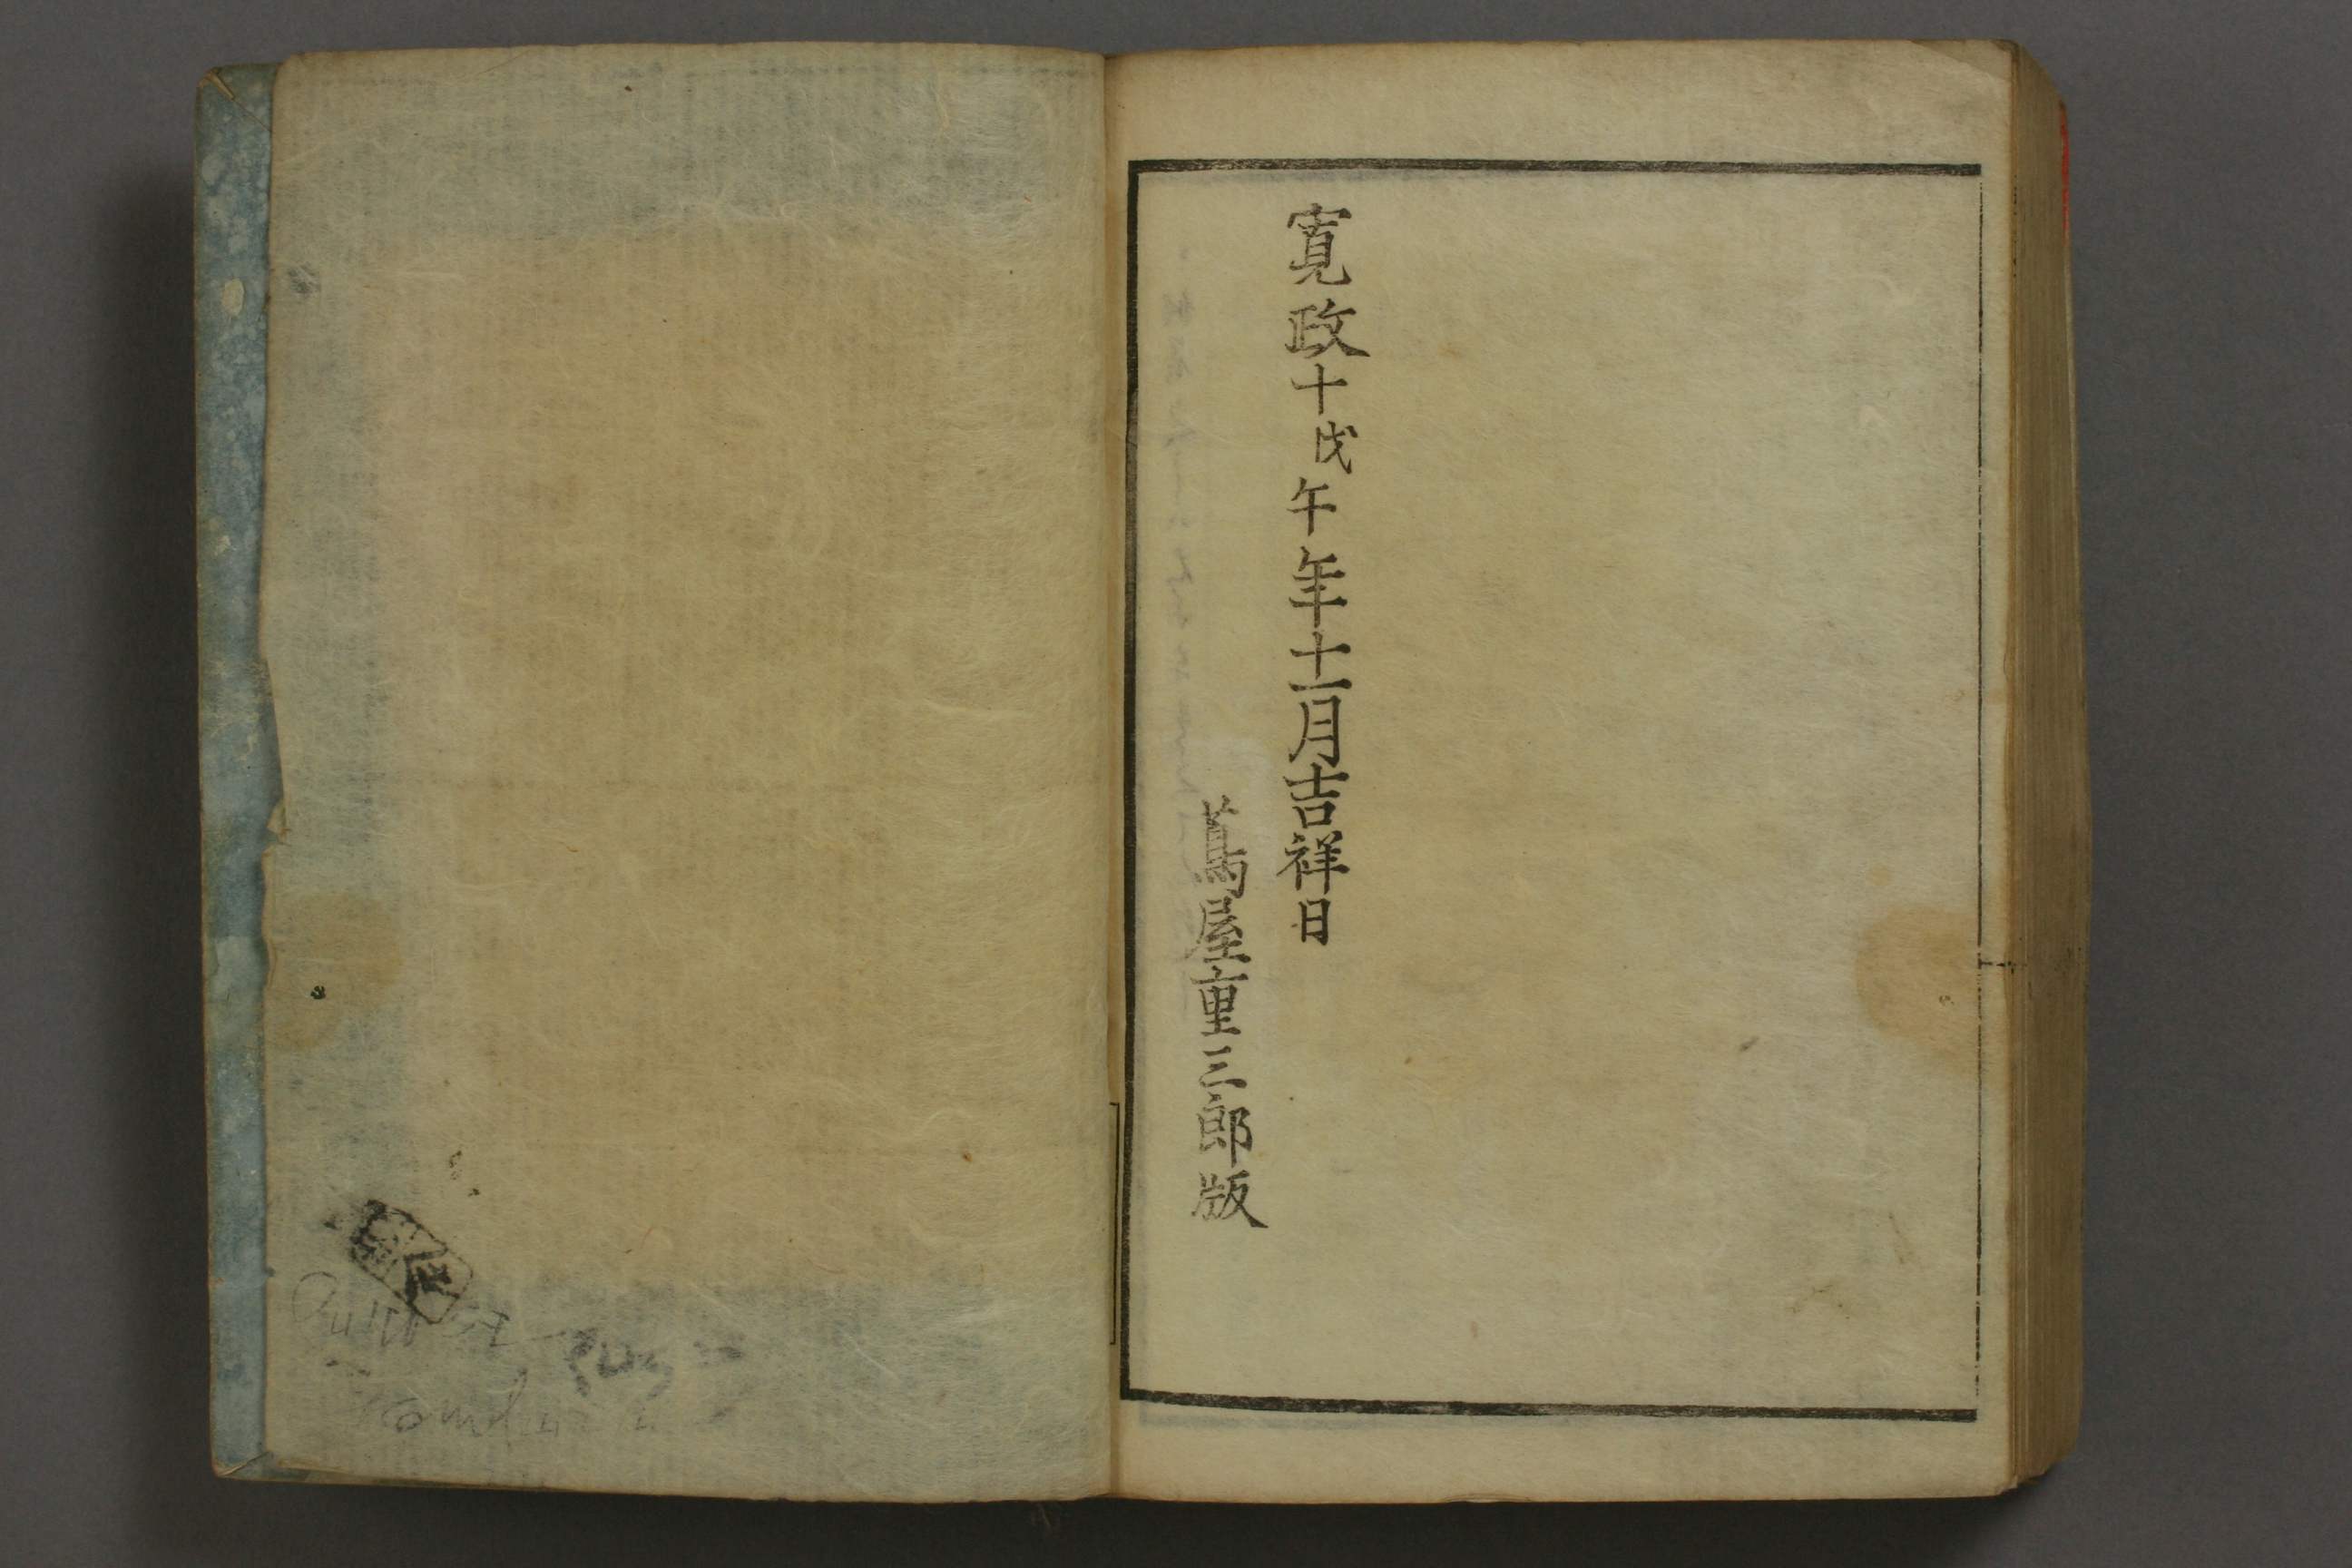 寛政十戊午年十一月吉祥日
蔦屋重三郎版